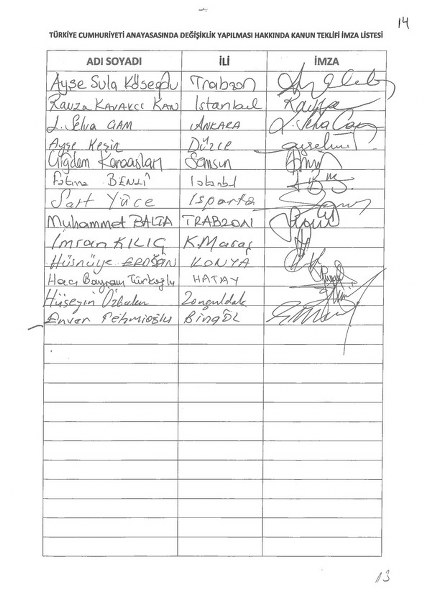 14
TÜRKİYE CUMHURİYETİ ANAYASASINDA DEĞİŞİKLİK YAPILMASI HAKKINDA KANUN TEKLİFİ İMZA LİSTESİ
ADI SOYADI İLİ İMZA
Ayşe Sula Köseoğlu Trabzon
Ravza KAVAKCI KAN İstanbul
J. Selva ÇAM ANKARA
Ayşe Keşir Düzce
Çiğdem Karaaslan Samsun
Fatma BENLİ İstanbul
Sait Yüce Isparta
Muhammet BALTA TRABZON
İmran KILIÇ K.Maraş
Hüsnüye ERDOĞAN KONYA
Hacı Bayram Türkoğlu HATAY
Hüseyin Özbakır Zonguldak
Enver Fehmioğlu BİNGÖL
13